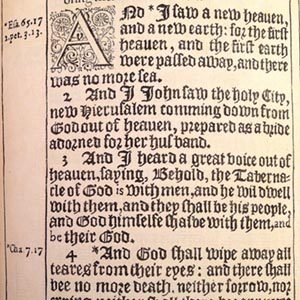 *Esa.65.17
2.pet. 3.13.
AND *I saw a new heauen,
and a new earth: for the first
heauen, and the first earth
were passed away, and there
was no more sea.
2 And I John saw the holy City,
new Hierusalem comming down from
God out of heauen, prepared as a bride
adorned for her husband.
3 And I heard a great voice out of
heauen, saying, Behold, the Taberna-
cle of God is with men, and he wil dwell
with them, and they shall be his people,
and God himselfe shal be with them, and
be their God.
*Cha 7.17
4 *And God shall wipe away all
teares from their eyes: and there shall
bee no more death, neither sorrow, nor